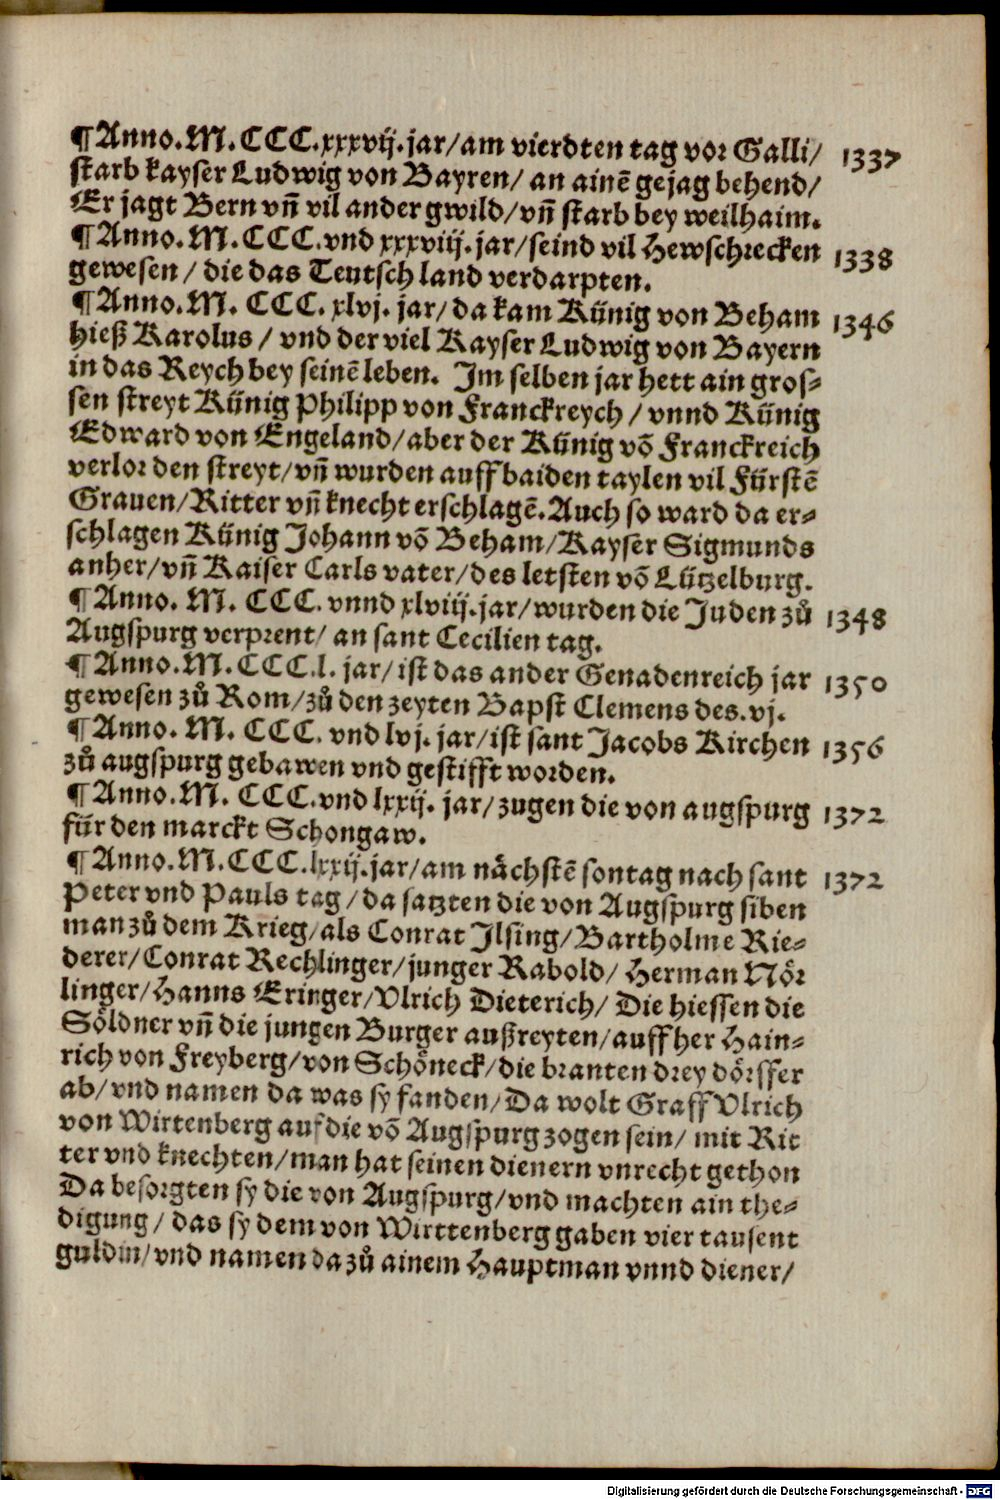 ¶Anno.M.CCC.xxxvij.jar/am vierdten tag vor Galli/ 1337
starb kayser Ludwig von Bayren/ an ainē gejag behend/
Er jagt Bern vn̄ vil ander gwild/vn̄ starb bey weilhaim.
¶Anno.M.CCC.vnd xxxviij.jar/seind vil Hewschrecken 1338
gewesen / die das Teutsch land verdarpten.
¶Anno.M. CCC. xlvj. jar/da kam Künig von Beham 1346
hieß Karolus / vnd der viel Kayser Ludwig von Bayern
in das Reych bey seinē leben. Im selben jar hett ain gros⸗
sen streyt Künig Philipp von Franckreych / vnnd Künig
Edward von Engeland/aber der Künig vō Franckreich
verlor den streyt/vn̄ wurden auff baiden taylen vil Fürstē
Grauen/Ritter vn̄ knecht erschlagē.Auch so ward da er⸗
schlagen Künig Johann vō Beham/Kayser Sigmunds
anher/vn̄ Kaiser Carls vater/des letsten vō Lützelburg.
¶Anno. M. CCC. vnnd xlviij.jar/wurden die Juden zů 1348
Augspurg verprent/ an sant Cecilien tag.
¶Anno.M.CCC.l. jar/ist das ander Genadenreich jar 1350
gewesen zů Rom/zů den zeyten Bapst Clemens des.vj.
¶Anno. M. CCC. vnd lvj. jar/ist sant Jacobs Kirchen 1356
zů augspurg gebawen vnd gestifft worden.
¶Anno.M. CCC.vnd lxxij. jar/zugen die von augspurg 1372
für den marckt Schongaw.
¶Anno.M.CCC.lxxij.jar/am nächstē sontag nach sant 1372
Peter vnd Pauls tag/da satzten die von Augspurg siben
man zů dem Krieg/als Conrat Ilsing/Bartholme Rie⸗
derer/Conrat Rechlinger/junger Rabold/ Herman Nör
linger/Hanns Eringer/Vlrich Dieterich/ Die hiessen die
Söldner vn̄ die jungen Burger außreyten/auff her Hain⸗
rich von Freyberg/von Schöneck/die branten drey dörffer
ab/vnd namen da was sy fanden/Da wolt Graff Vlrich
von Wirtenberg auf die vō Augspurg zogen sein/ mit Rit
ter vnd knechten/man hat seinen dienern vnrecht gethon
Da besorgten sy die von Augspurg/vnd machten ain the⸗
digung/ das sy dem von Wirttenberg gaben vier tausent
guldin/vnd namen da zů ainem Hauptman vnnd diener/
Digitalisierung gefördert durch die Deutsche Forschungsgemeinschaft - DFG